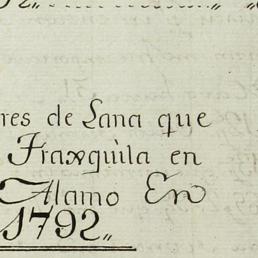 res de Lana que
Fraxquila en
Alamo En
1792„